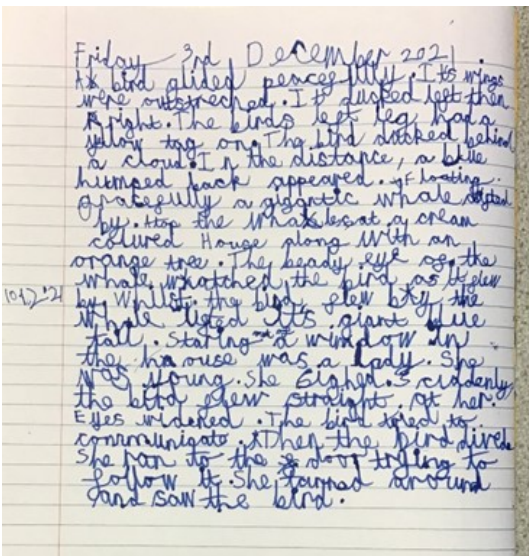 Friday 3rd December 2021.
A bird glided peacefully. Its wings
were outstreched. It ducked left then
right. The birds left leg had a
yellow tag on. The bird ducked behind
a cloud. In the distance, a blue
humped back appeared. Floating
gracefully a gigantic whale
by. Atop the whale sat a cream
coloured House along with an
orange tree. The beady eye of the
whale whatched the bird as it flew
10.12.21
by. Whilst the bird flew by the
whale lifted its giant blue
tail. Staring out a window in
the house was a lady. She
was young. She sighed. Suddenly
the bird flew straight at her.
Eyes widened. The bird tried to
communicate. Then the bird dived
She ran to the door trying to
follow it. She turned around
and saw the bird.